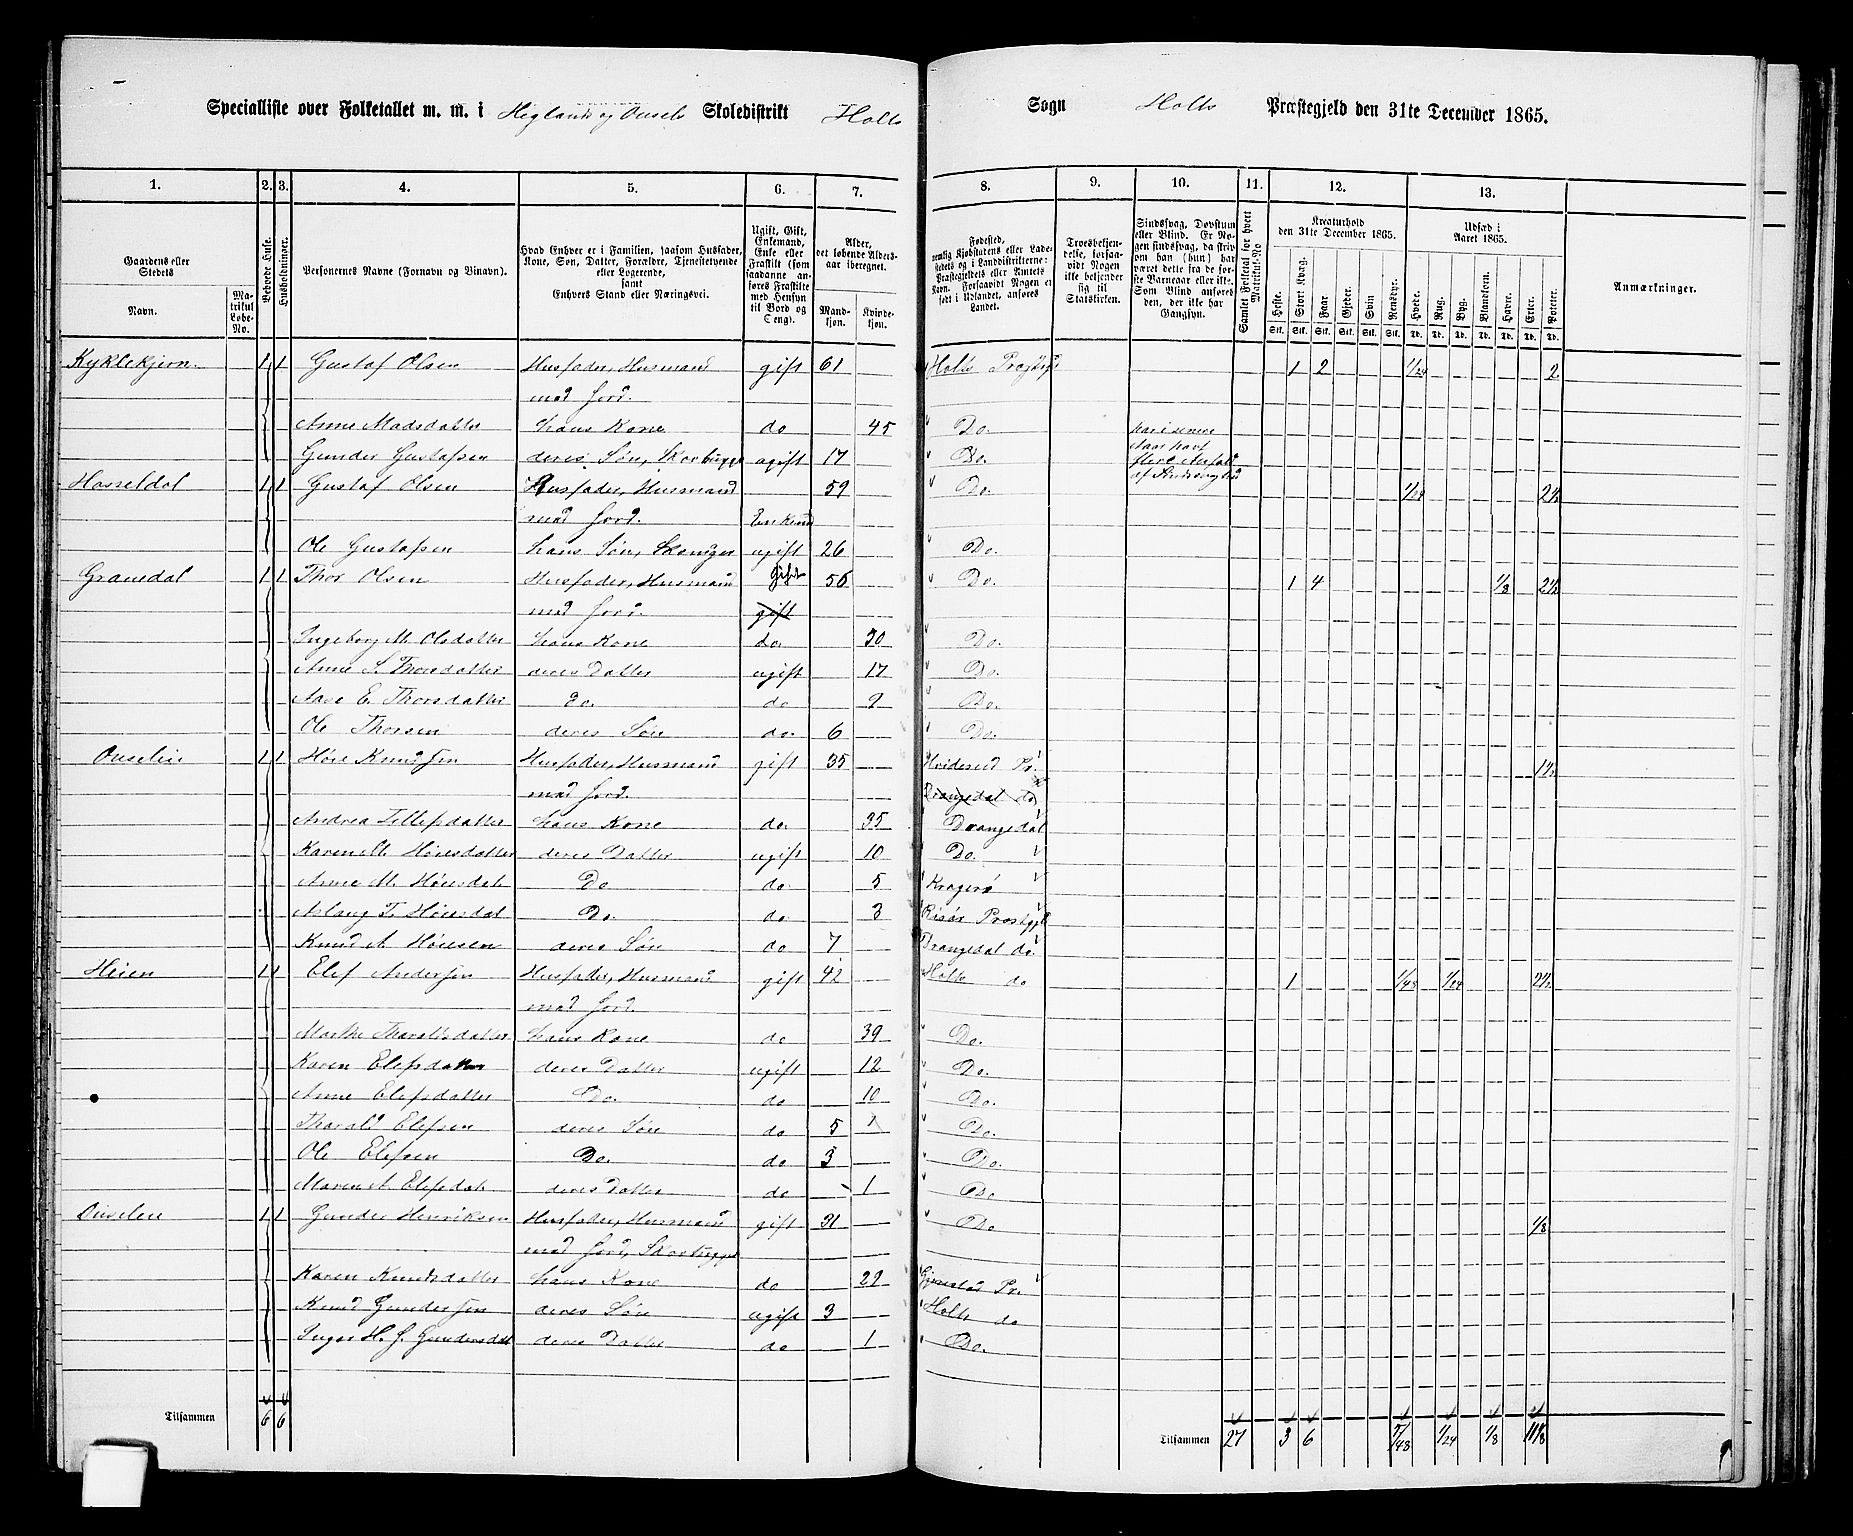 Specialliste over Folketallet m. m. i Hegland og Ousels Skoledistrikt Holts Sogn Holts Præstegjeld den 31te December 1865.
1. 2. 3. 4. 5. 6. 7. 8. 9. 10. 11. 12. 13.
Gaardenes eller Stedets
Navn.
Matrikul Løbe-No.
Beboede Huse.
Husholdninger.
Personernes Navne (Fornavn og Tilnavn).
Hvad Enhver er i Familien, saasom Husfader, Kone, Søn, Datter, Forældre, Tjenestetyende eller Logerende, samt Enhvers Stand eller Næringsvei.
Ugift, Gift, Enkemand, Enke eller Fraskilt (som saadanne anføres Fraskilte med Hensyn til Bord og Seng).
Alder, det løbende Aldersaar iberegnet.
Mandkjøn. Kvindekjøn.
Fødested,
Troesbekjendelse, forsaavidt Nogen ikke bekjender sig til Statskirken.
Sindssvag, Døvstum eller Blind.
Samlet Folketal for hvert Matrikul-No
Kreaturhold den 31te December 1865.
Heste. Stort Kvæg. Faar. Gjeder. Svin. Rensdyr.
Udsæd i Aaret 1865.
Hvede. Rug. Byg. Blandkorn. Havre. Erter. Poteter.
Anmærkninger.
Kyklekjern 1 1 Gustaf Olsen Husfader, Husmand gift 61 Holts Prgjld 1 2 1/24 2
med Jord.
Anne Madsdatter hans Kone do 45 Do.
Gunder Gustafsen deres Søn, Skovhugger ugift 17 Do.
Hasseldal 1 1 Gustaf Olsen Husfader, Husmand 59 Do. 2½
med Jord. Enkemd
Ole Gustafsen hans Søn, ugift 26 Do.
Granedal 1 1 Thor Olsen Husfader, Husmand Gift 56 Do. 1 4 1/8 2½
med Jord. gift
Ingeborg M. Olsdatter hans Kone do. 30 Do.
Anne S. Thorsdatter deres Datter ugift 17 Do.
Aase E. Thorsdatter Do. do 9 Do.
Ole Thorsen deres Søn do. 6 Do.
Ouselien 1 1 Knudsen Husfader, Husmand gift 35 Hvideseid Pr. 1½
med Jord. Drangedal do
Andrea Tellefsdatter hans Kone do. 35 Drangedal
Karen M. deres Datter ugift 10 Do.
Anne M. Do do. 5 Kragerø
Aslaug T. Do. do 3 Risør Præstgjl
Knud A. deres Søn do 7 Drangedal do.
Heien 1 1 Elef Andersen Husfader, Husmand gift 42 Holts do 1 1/48 1/24 2½
med Jord.
Marthe Tharaldsdatter hans Kone do 39 Do.
Karen Elefsdatter deres Datter ugift 12 Do.
Anne Elefsdatter Do. do 10 Do.
Tharald Elefsen deres Søn do 5 Do.
Ole Elefsen Do. do 3 Do.
Maren A. Elefsdat deres Datter do 1 Do
Ouselien 1 1 Gunder Henriksen Husfader, Husmand gift 31 Do 1/8
med Jord, Skovhugger
Karen Knudsdatter hans Kone do 29 Gjerestad Pr.
Knud Gundersen deres Søn ugift 3 Holts do
Inger H. G. Gundersdat deres Datter do 1 Do.
Tilsammen 6 6 Tilsammen 27 3 6 1/24 1/8 11⅛